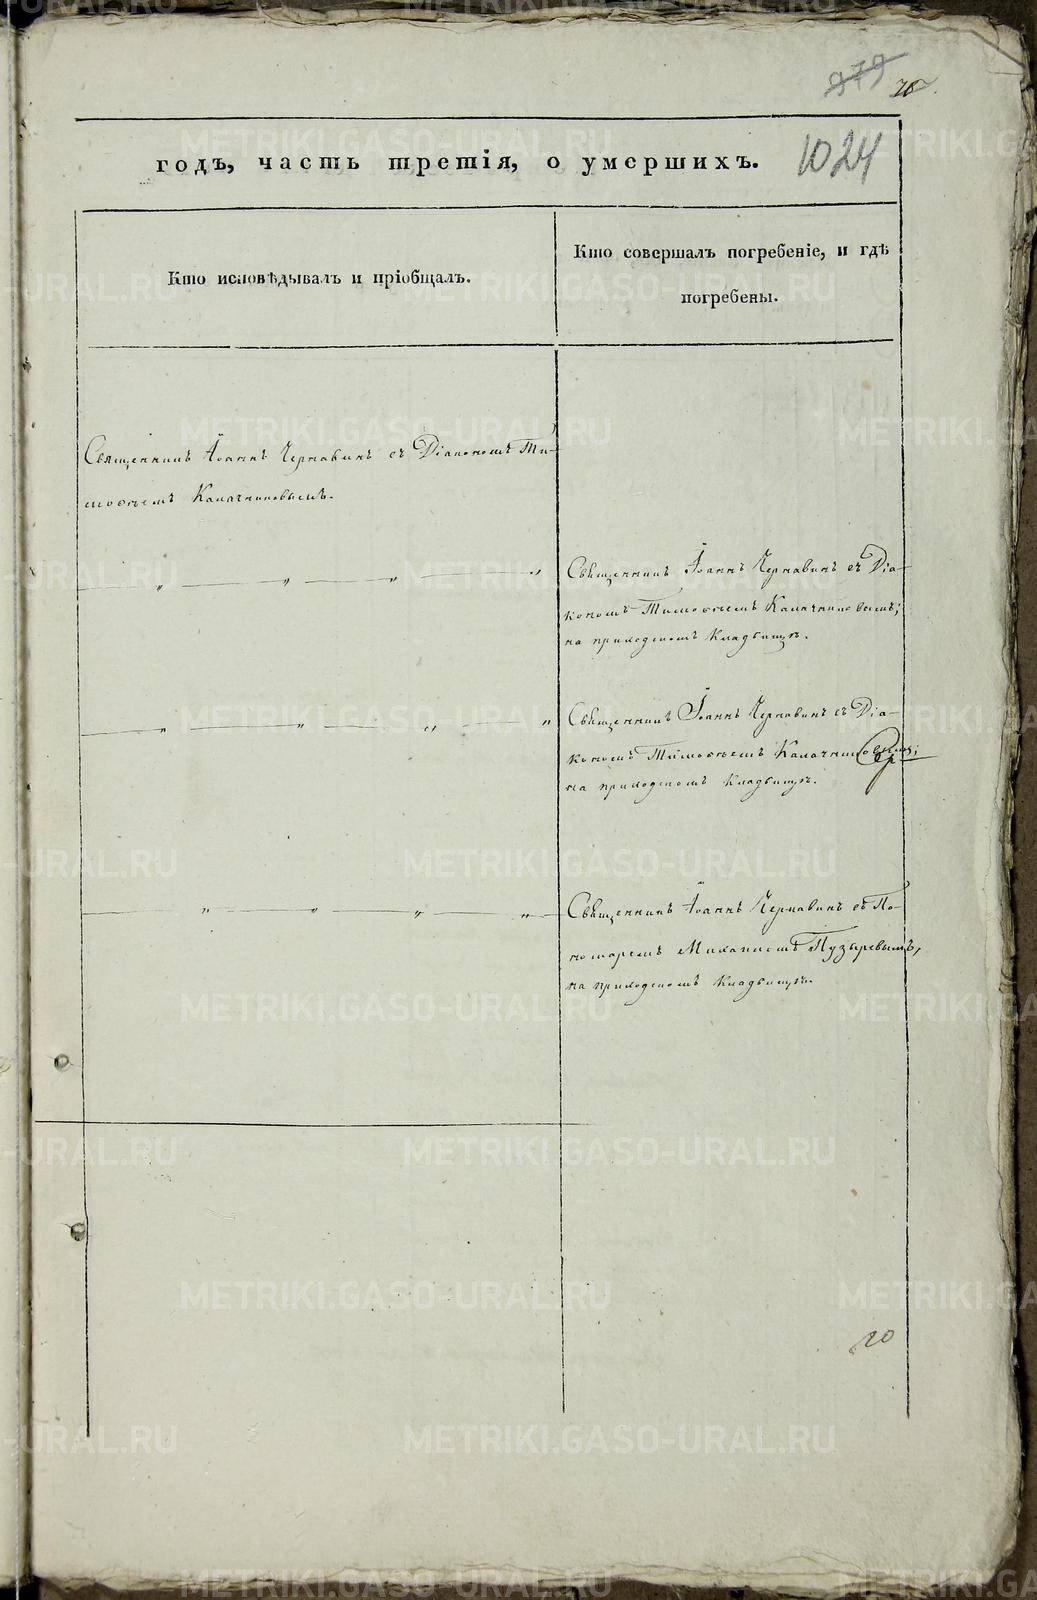 979
1024
годъ, часть третія, о умершихъ.
Кто исповѣдывалъ и пріобщалъ.
Кто совершалъ погребеніе, и гдѣ
погребены.
Священникъ Іоаннъ Чернавинъ съ Діакономъ Ти-
моѳеемъ Калачниковымъ.
Священникъ Іоаннъ Чернавинъ съ Діа-
кономъ Тимоѳеемъ Калачниковымъ;
на приходскомъ кладбищѣ.
Священникъ Іоаннъ Чернавинъ съ Діа-
кономъ Тимоѳеемъ Калачниковымъ;
на приходскомъ кладбищѣ.
Священникъ Іоаннъ Чернавинъ съ По-
номаремъ Михаиломъ Пузыревымъ,
на приходскомъ кладбищѣ.
20
METRIKI.GASO-URAL.RU